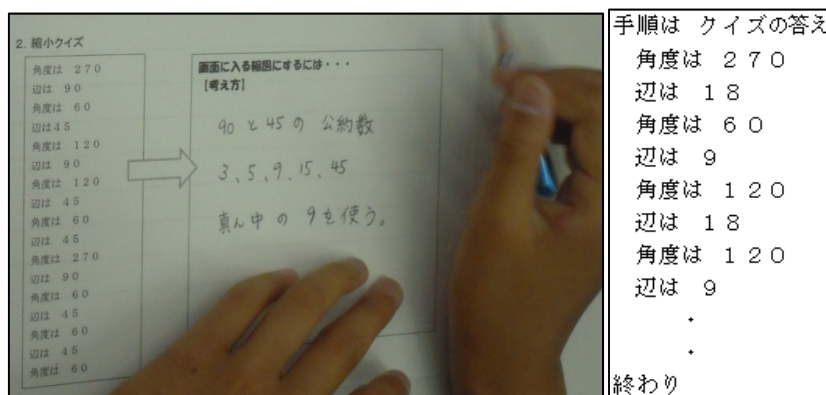 2. 縮小クイズ
角度は 270
辺は 90
角度は 60
辺は45
角度は 120
辺は 90
角度は 120
辺は 45
角度は 60
辺は 45
角度は 270
辺は 90
角度は 60
辺は 45
角度は 60
辺は 45
角度は 60
画面に入る縮図にするには・・・
【考え方】
90 と 45 の 公約数
3、5、9、15、45
真ん中 の 9を使う。
手順は クイズの答え
角度は 270
辺は 18
角度は 60
辺は 9
角度は 120
辺は 18
角度は 120
辺は 9
・
・
終わり